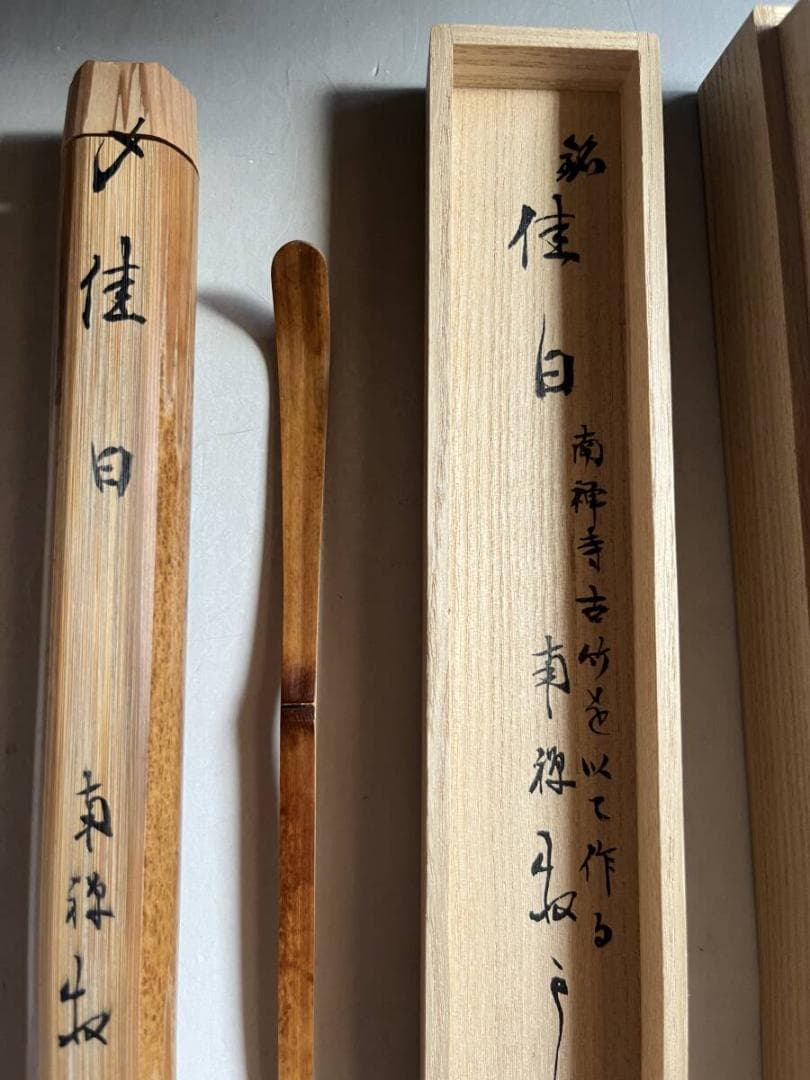 〆
佳日
南禅
銘
佳日
南禅寺古竹を以て作る
南禅